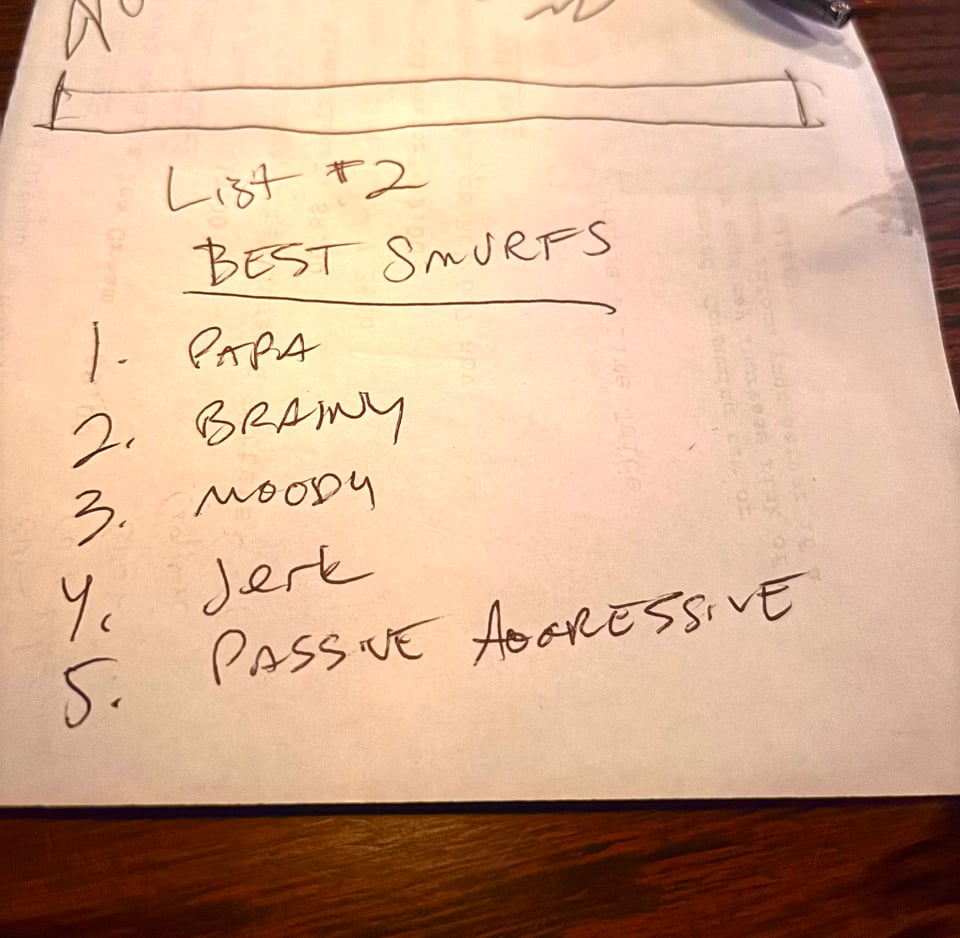 List #2
BEST SMURFS
1. PAPA
2. BRAINY
3. MOODY
4. Jerk
5. PASSIVE AGGRESSIVE